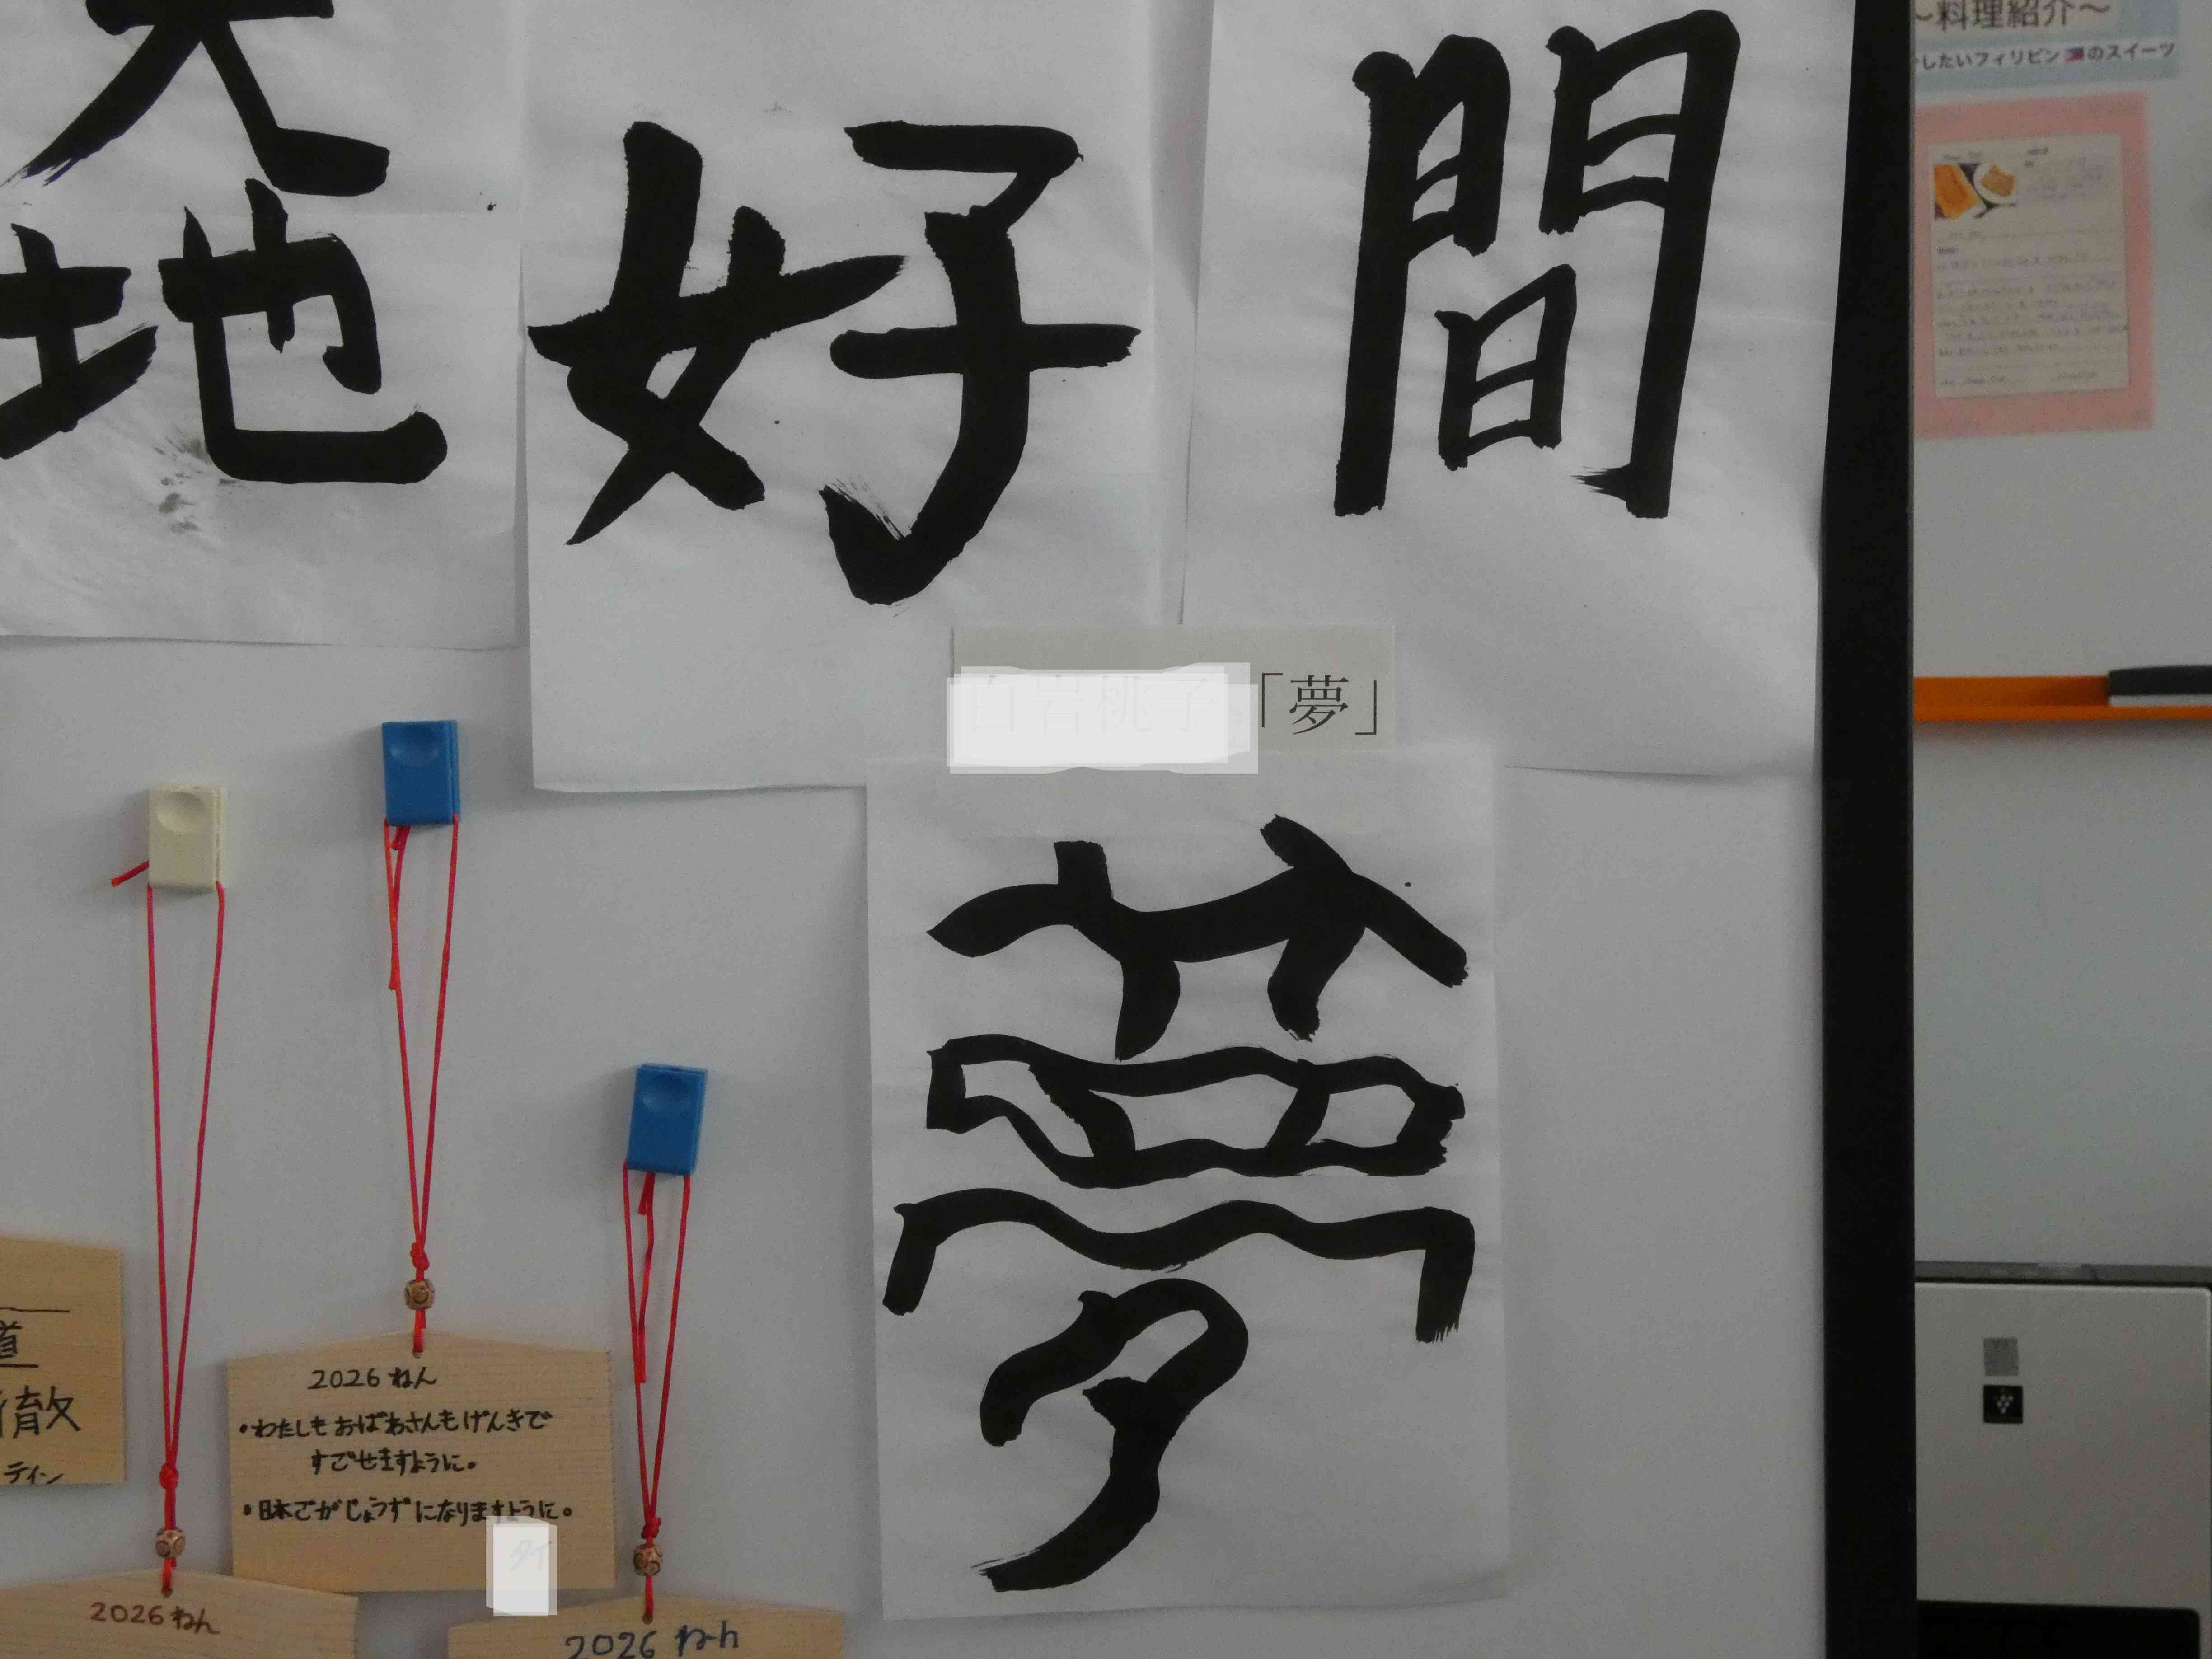 地
好
間
〜料理紹介〜
したいフィリピン のスイーツ
「夢」
夢
道
徹
2026ねん
・わたしもおばあさんもげんきで
すごせますように。
・日本ごがじょうずになりますように。
2026ねん
2026ねん